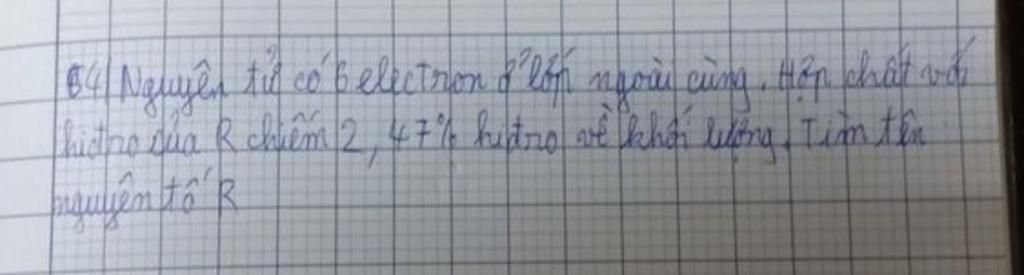 64) Nguyên tử có 6 electron ở lớp ngoài cùng. Hợp chất với
hiđro của R chiếm 2,47% hiđro về khối lượng. Tìm tên
nguyên tố R